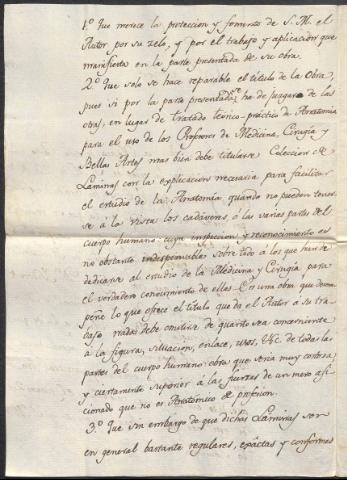 1.º Que merece la proteccion y fomento de S. M. el
Autor por su zelo, y por el trabajo y aplicacion que
manifiesta en la parte presentada de su obra.
2.º Que solo se hace reparable el titulo de la Obra,
pues si por la parte presentada se ha de juzgar de las
otras, en lugar de Tratado teorico-practico de Anatomia
para el uso de los Profesores de Medicina, Cirugia y
Bellas Artes mas bien debe titularse Coleccion de
Laminas con la explicacion necesaria para facilitar
el estudio de la Anatomia quando no pueden tener-
se á la vista los cadaveres ó las varias partes del
cuerpo humano cuya inspeccion y reconocimiento es
no obstante indispensable sobre todo á los que han de
dedicarse al estudio de la Medicina y Cirugia para
el verdadero conocimiento de ellas. En una obra que desem-
peñe lo que ofrece el titulo que da el Autor á su tra-
bajo nada debe omitirse de quanto sea concerniente
á la figura, situacion, enlace, usos, &c. de todas las
partes del cuerpo humano: obra que seria muy costosa
y ciertamente superior á las fuerzas de un mero afi-
cionado que no es Anatomico de profesion.
3.º Que sin embargo de que dichas Laminas son
en general bastante regulares, exactas y conformes